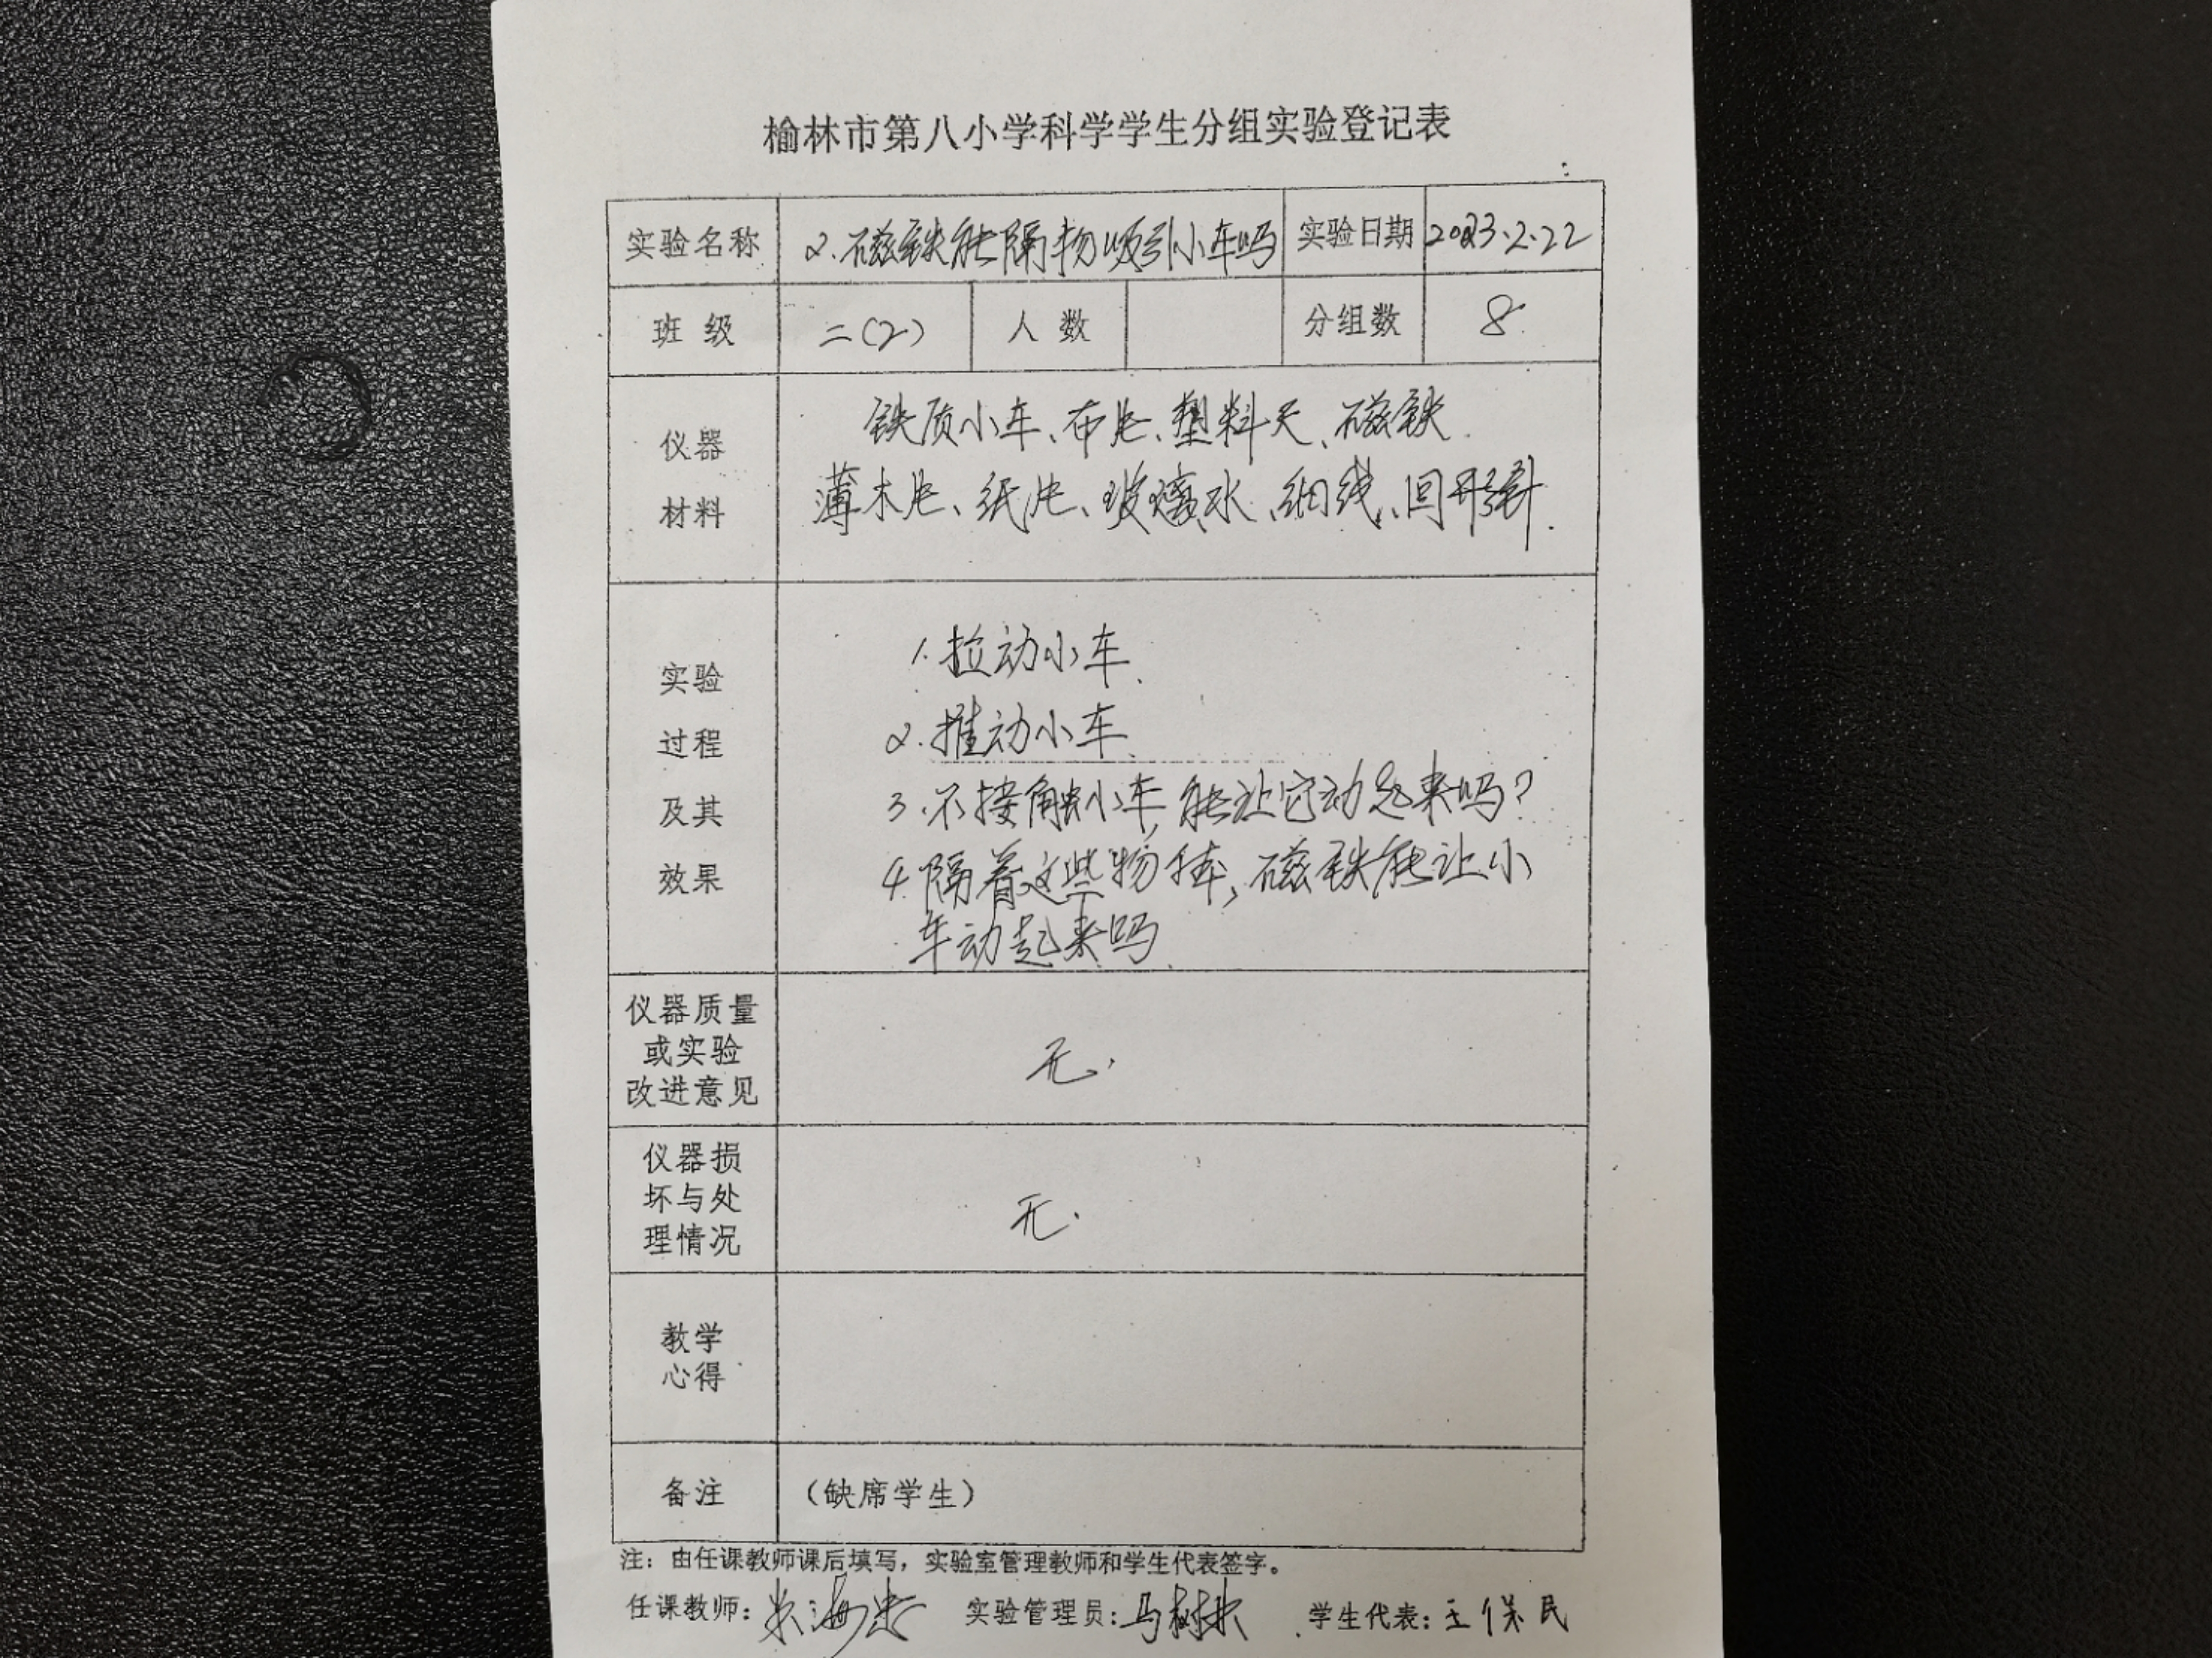 榆林市第八小学科学学生分组实验登记表
实验名称 2.磁铁能隔物吸引小车吗 实验日期 2023.2.22
班 级 二(2) 人 数 分组数 8
仪器
材料
铁质小车、布片、塑料尺、磁铁.
薄木片、纸片、玻璃水、细线、回形针.
实验
过程
及其
效果
1.拉动小车.
2.推动小车.
3.不接触小车,能让它动起来吗?
4.隔着这些物体,磁铁能让小
车动起来吗.
仪器质量
或实验
改进意见
无.
仪器损
坏与处
理情况
无.
教学
心得
备注 (缺席学生)
注：由任课教师课后填写，实验室管理教师和学生代表签字。
任课教师： 实验管理员：马树林 学生代表：王保民